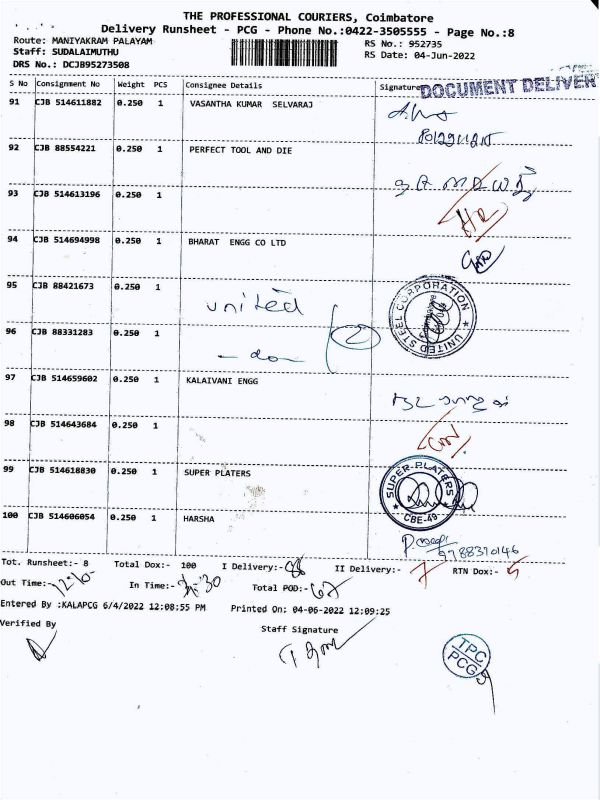 THE PROFESSIONAL COURIERS, Coimbatore
Delivery Runsheet - PCG - Phone No.:0422-3505555 - Page No.:8
Route: MANIYAKRAM PALAYAM
RS No.: 952735
Staff: SUDALAIMUTHU
RS Date: 04-Jun-2022
DRS No.: DCJB95273508
S No Consignment No Weight PCS Consignee Details Signature
DOCUMENT DELIVER
91 CJB 514611882 0.250 1 VASANTHA KUMAR SELVARAJ
92 CJB 88554221 0.250 1 PERFECT TOOL AND DIE
93 CJB 514613196 0.250 1
94 CJB 514694998 0.250 1 BHARAT ENGG CO LTD
95 CJB 88421673 0.250 1 United
UNITED STEEL CORPORATION
96 CJB 88331283 0.250 1 - do -
97 CJB 514659602 0.250 1 KALAIVANI ENGG
98 CJB 514643684 0.250 1
99 CJB 514618830 0.250 1 SUPER PLATERS
SUPER-PLATERS
CBE-49
100 CJB 514606054 0.250 1 HARSHA
9788310146
Tot. Runsheet:- 8 Total Dox:- 100 I Delivery:- II Delivery:- 7 RTN Dox:- 5
Out Time:- In Time:- Total POD:- 67
Entered By :KALAPCG 6/4/2022 12:08:55 PM Printed On: 04-06-2022 12:09:25
Verified By
Staff Signature
TPC
PCG